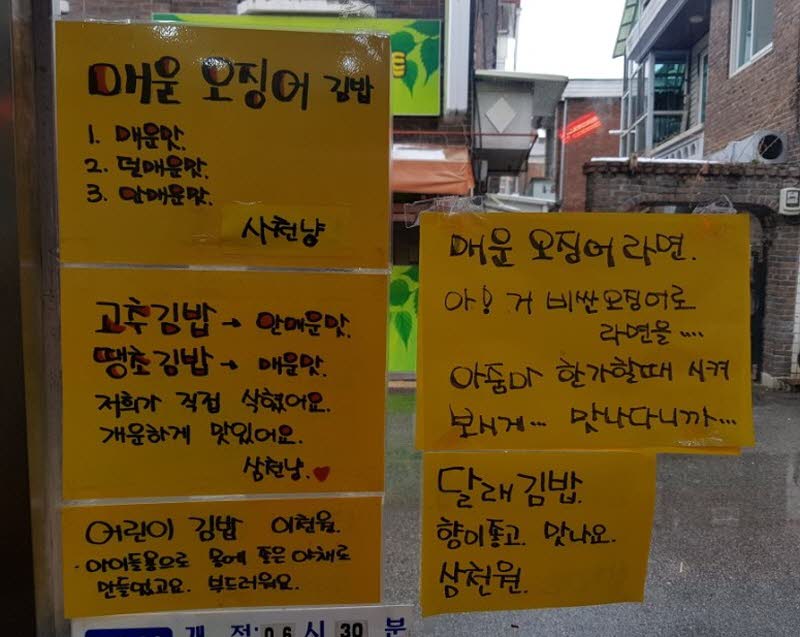 매운 오징어 김밥
1. 매운맛.
2. 덜매운맛.
3. 안매운맛.
사천냥
고추김밥 → 안매운맛.
땡초김밥 → 매운맛.
저희가 직접 삭혔어요.
개운하게 맛있어요.
삼천냥.
어린이 김밥 이천원.
· 아이들몸으로 몸에 좋은 야채로
만들었고요. 부드러워요.
개 점: 06 시 30 분
매운 오징어 라면.
아! 거 비싼오징어로
라면을....
아줌마 한가할때 시켜
보시게... 맛나다니까...
달래김밥.
향이좋고. 맛나요.
삼천원.